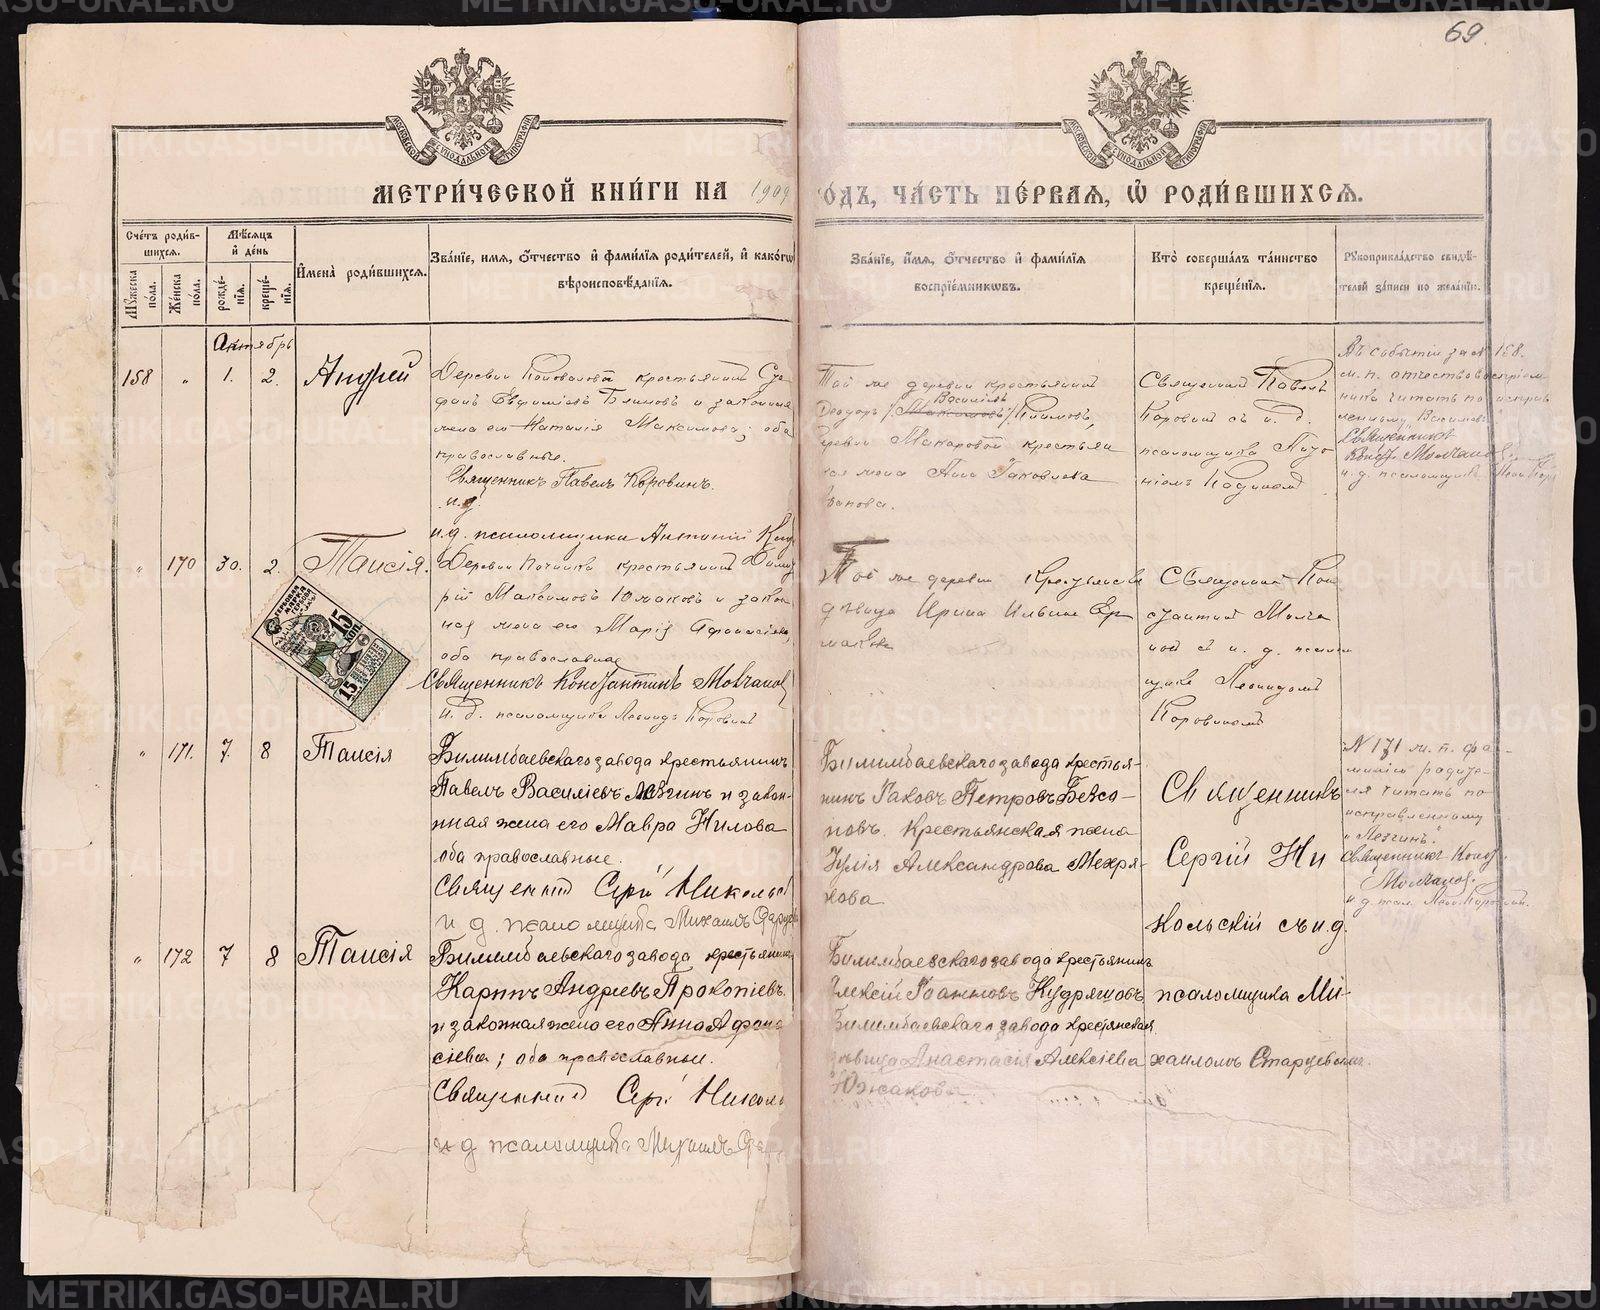 69.
МЕТРИ́ЧЕСКОЙ КНИ́ГИ НА 1909
ОДЪ, ЧА́СТЬ ПЕ́РВАЯ, Ѡ҆ РОДИ́ВШИХСѦ.
Сче́тъ роди́в-
шихся.
Мѣ́сяцъ
и҆ де́нь
Мꙋ́жеска
по́ла.
Же́нска
по́ла.
рожде́-
нїѧ.
креще́-
нїѧ.
И҆мена̀ роди́вшихсѧ.
Зва́нїе, и҆мѧ, ѻ҆́тчество и҆ фами́лїѧ роди́телей, и҆ како́гѡ
вѣроисповѣ́данїѧ.
Зва́нїе, и҆́мѧ, ѻ҆́тчество и҆ фами́лїѧ
воспрїе́мникѡвъ.
Кто̀ соверша́лъ та́инство
креще́нїѧ.
Рꙋкоприкла́дство свидѣ́-
телей за́писи по жела́нїю.
Октябрь
158 " 1. 2. Андрей
крестьянинъ
и законная
жена его Наталія Максимова; оба
православные.
Священникъ Павелъ Коровинъ.
и.д.
и.д. псаломщика Антоній
Той же деревни крестьянинъ
Ѳеодоръ Василіевъ
деревни Макаровой крестьян
ская жена Анна Іаковлева
Священникъ Павелъ
Коровинъ съ и. д.
псаломщика Анто
ніемъ
Въ событіи за № 158.
м. п. отчество воспріем
ника читать по исправ
ленному "Василіевъ"
Священникъ
Конст. Молчановъ
и. д. псаломщика
" 170 30. 2. Таисія.
Деревни крестьянинъ Дими
рій Максимовъ Южаковъ и закон
ная жена его Марія Афанасіева,
оба православные
Священникъ Константинъ Молчановъ
и. д. псаломщика Леонидъ Коровинъ
Той же деревни крестьянска
дѣвица Ирина Ильина Ер
Священникъ Кон
стантинъ Молча
новъ съ и. д. псалом
щика Леонидомъ
Коровинымъ
15 КОП.
15
" 171. 7. 8 Таисія
Билимбаевскаго завода крестьянинъ
Павелъ Василіевъ Лезгинъ и закон-
ная жена его Мавра Нилова
оба православные.
Священникъ Сергій Никольск
и д. псаломщика Михаилъ Старцев
Билимбаевскаго завода крестья-
нинъ Іаковъ Петровъ Безсо-
новъ. Крестьянская жена
Іулія Александрова Мехря-
кова
Священникъ
Сергій Ни
кольскій съ и.д.
№ 171 м. п. фа-
милію родите-
ля читать по
исправленному
"Лезгинъ".
Священникъ Конст.
Молчановъ.
и д псал. Леон. Коровинъ.
" 172 7 8 Таисія
Билимбаевскаго завода крестьянинъ
Карпъ Андреевъ Прокопіевъ
и законная жена его Анна Афана
сіева; оба православные.
Священникъ Сергій Николь
и д псаломщика Михаилъ Стар
Билимбаевскаго завода крестьянинъ
Алексій Іоанновъ Кудряшовъ
Билимбаевскаго завода крестьянская
дѣвица Анастасія Алексіева
Южакова
псаломщика Ми-
хаиломъ Старцевымъ.
METRIKI.GASO-URAL.RU